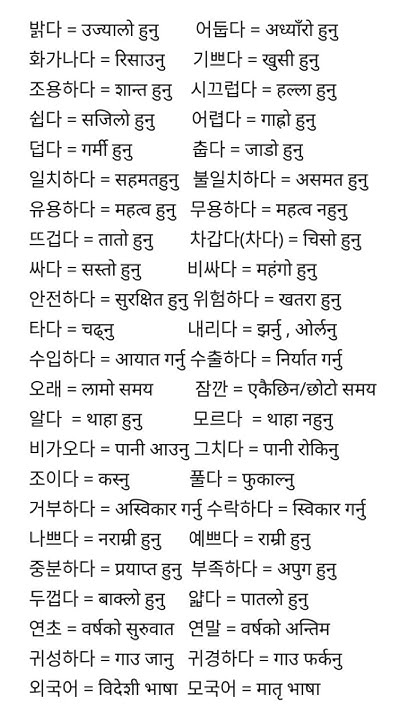 밝다 = उज्यालो हुनु 어둡다 = अध्याँरो हुनु
화가나다 = रिसाउनु 기쁘다 = खुसी हुनु
조용하다 = शान्त हुनु 시끄럽다 = हल्ला हुनु
쉽다 = सजिलो हुनु 어렵다 = गाह्रो हुनु
덥다 = गर्मी हुनु 춥다 = जाडो हुनु
일치하다 = सहमतहुनु 불일치하다 = असमत हुनु
유용하다 = महत्व हुनु 무용하다 = महत्व नहुनु
뜨겁다 = तातो हुनु 차갑다(차다) = चिसो हुनु
싸다 = सस्तो हुनु 비싸다 = महंगो हुनु
안전하다 = सुरक्षित हुनु 위험하다 = खतरा हुनु
타다 = चढ्नु 내리다 = झर्नु , ओर्लनु
수입하다 = आयात गर्नु 수출하다 = निर्यात गर्नु
오래 = लामो समय 잠깐 = एकैछिन/छोटो समय
알다 = थाहा हुनु 모르다 = थाहा नहुनु
비가오다 = पानी आउनु 그치다 = पानी रोकिनु
조이다 = कस्नु 풀다 = फुकाल्नु
거부하다 = अस्विकार गर्नु 수락하다 = स्विकार गर्नु
나쁘다 = नराम्री हुनु 예쁘다 = राम्री हुनु
중분하다 = प्रयाप्त हुनु 부족하다 = अपुग हुनु
두껍다 = बाक्लो हुनु 얇다 = पातलो हुनु
연초 = वर्षको सुरुवात 연말 = वर्षको अन्तिम
귀성하다 = गाउ जानु 귀경하다 = गाउ फर्कनु
외국어 = विदेशी भाषा 모국어 = मातृ भाषा